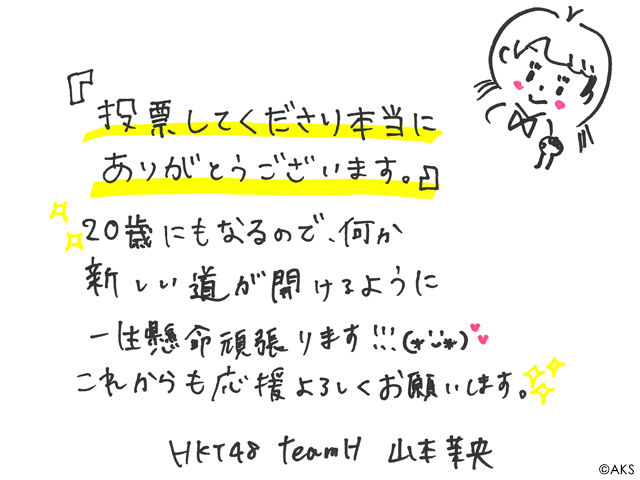 『投票してくださり本当に
ありがとうございます。』
20歳にもなるので、何か
新しい道が開けるように
一生懸命頑張ります!!!(*¨*)
これからも応援よろしくお願いします。
HKT48 teamH 山本茉央
©AKS